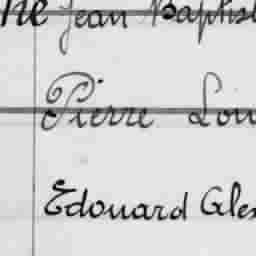 ne Jean Baptist
Pierre Lou
Edouard Alex